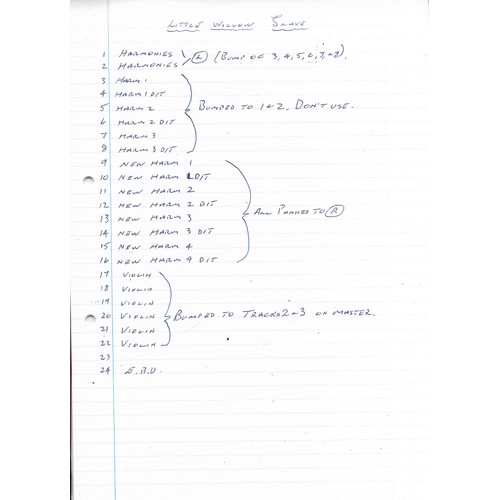 LITTLE WILLOW SLAVE
1 HARMONIES
2 HARMONIES } (L) (BUMP OF 3, 4, 5, 6, 7, +8).
3 HARM 1
4 HARM 1 DIT
5 HARM 2 } BUMPED TO 1&2, DON'T USE.
6 HARM 2 DIT
7 HARM 3
8 HARM 3 DIT
9 NEW HARM 1
10 NEW HARM 1 DIT
11 NEW HARM 2
12 NEW HARM 2 DIT } ALL PANNED TO (R)
13 NEW HARM 3
14 NEW HARM 3 DIT
15 NEW HARM 4
16 NEW HARM 4 DIT
17 VIOLIN
18 VIOLIN
19 VIOLIN
20 VIOLIN } BUMPED TO TRACKS 2+3 ON MASTER.
21 VIOLIN
22 VIOLIN
23
24 E.B.U.